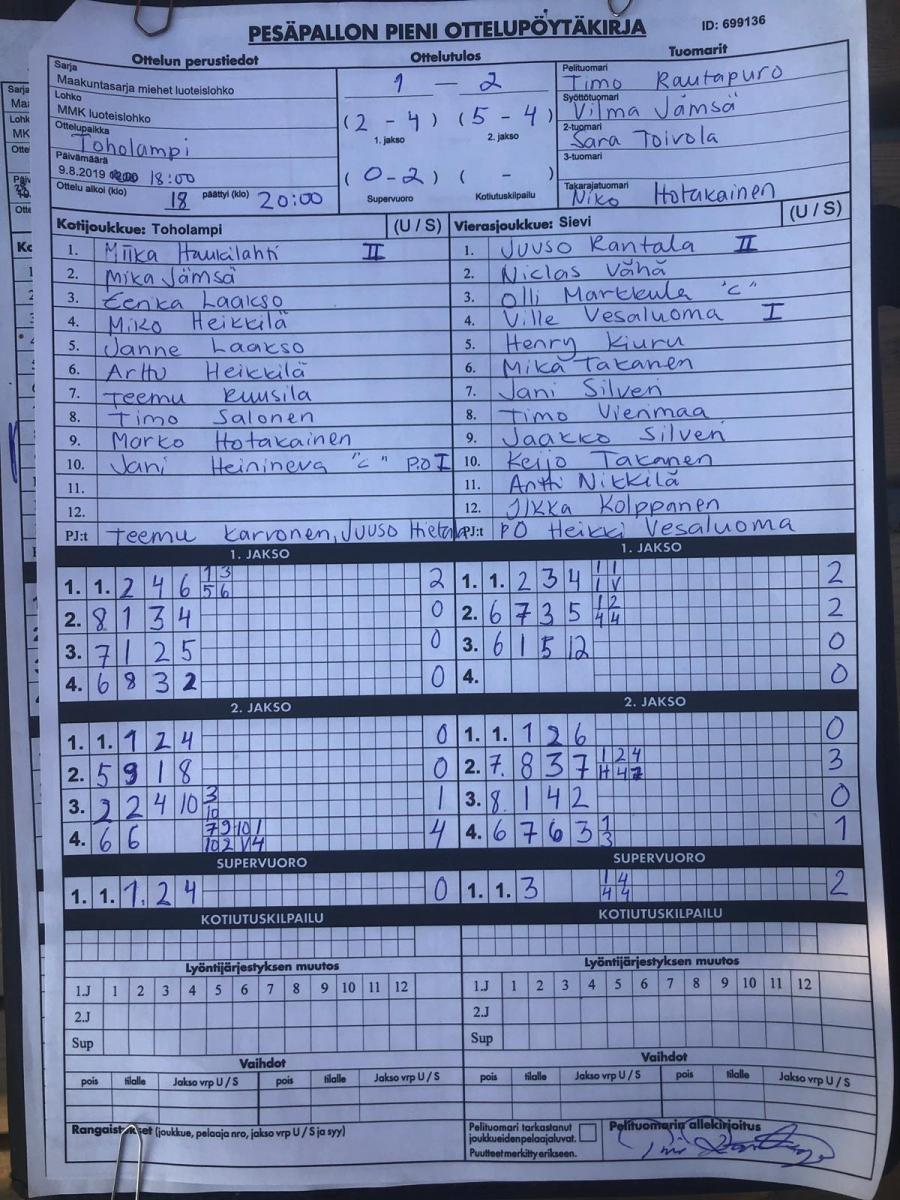 PESÄPALLON PIENI OTTELUPÖYTÄKIRJA
ID: 699136
Ottelun perustiedot
Sarja
Maakuntasarja miehet luoteislohko
Lohko
MMK luoteislohko
Ottelupaikka
Toholampi
Päivämäärä
9.8.2019 18:00
Ottelu alkoi (klo) 18 päättyi (klo) 20:00
Ottelutulos
1 – 2
(2 - 4) (5 - 4)
1. jakso 2. jakso
(0-2) ( - )
Supervuoro Kotiutuskilpailu
Tuomarit
Pelituomari
Timo Rautapuro
Syöttötuomari
Vilma Jämsä
2-tuomari
Sara Toivola
3-tuomari
Takarajatuomari
Niko Hotakainen
Kotijoukkue: Toholampi (U / S)
1. Miika Haukilahti II
2. Mika Jämsä
3. Eenka Laakso
4. Miko Heikkilä
5. Janne Laakso
6. Arttu Heikkilä
7. Teemu Kuusila
8. Timo Salonen
9. Marko Hotakainen
10. Jani Heinineva "C" P.O I
11.
12.
PJ:t Teemu Karvonen, Juuso Hietala
Vierasjoukkue: Sievi (U / S)
1. Juuso Rantala II
2. Niclas Vähä
3. Olli Markkula "C"
4. Ville Vesaluoma I
5. Henry Kiuru
6. Mika Takanen
7. Jani Silven
8. Timo Vierimaa
9. Jaakko Silven
10. Keijo Takanen
11. Antti Nikkilä
12. Jikka Kolppanen
PJ:t PO Heikki Vesaluoma
1. JAKSO
1. 1. 2 4 6 1 3 2
5 6
2. 8 1 3 4 0
3. 7 1 2 5 0
4. 6 8 3 2 0
1. JAKSO
1. 1. 2 3 4 1 1 2
1 V
2. 6 7 3 5 1 2 2
4 4
3. 6 1 5 12 0
4. 0
2. JAKSO
1. 1. 1 2 4 0
2. 5 9 1 8 0
3. 2 2 4 10 3 1
10
4. 6 6 7 9 10 1 4
10 2 V 4
2. JAKSO
1. 1. 1 2 6 0
2. 7. 8 3 7 1 2 4 3
H 4 7
3. 8. 1 4 2 0
4. 6 7 6 3 1 1
3
SUPERVUORO
1. 1. 1. 2 4 0
SUPERVUORO
1. 1. 3 1 4 2
4 4
KOTIUTUSKILPAILU
KOTIUTUSKILPAILU
Lyöntijärjestyksen muutos
1.J 1 2 3 4 5 6 7 8 9 10 11 12
2.J
Sup
Lyöntijärjestyksen muutos
1.J 1 2 3 4 5 6 7 8 9 10 11 12
2.J
Sup
Vaihdot
pois tilalle Jakso vrp U / S pois tilalle Jakso vrp U / S
Vaihdot
pois tilalle Jakso vrp U / S pois tilalle Jakso vrp U / S
Rangaistukset (joukkue, pelaaja nro, jakso vrp U / S ja syy)
Pelituomari tarkastanut
joukkueiden pelaajaluvat.
Puutteet merkitty erikseen.
Pelituomarin allekirjoitus